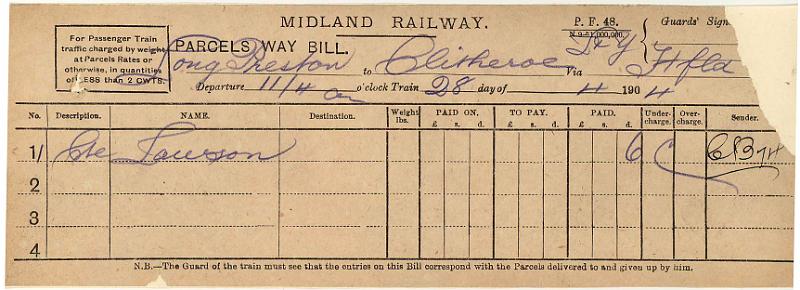 MIDLAND RAILWAY.
P. F. 48.
Guards' Sign
For Passenger Train
traffic charged by weight
at Parcels Rates or
otherwise, in quantities
of LESS than 2 CWTS.
PARCELS WAY BILL.
Long Preston to Clitheroe Via L & Y Hfld
Departure 11/4 am o'clock Train 28 day of 4 1904
No. Description. NAME. Destination. Weight lbs. PAID ON. £ s. d. TO PAY. £ s. d. PAID. £ s. d. Under-charge. Over-charge. Sender.
1/ Lawson 6
2
3
4
N.B.—The Guard of the train must see that the entries on this Bill correspond with the Parcels delivered to and given up by him.